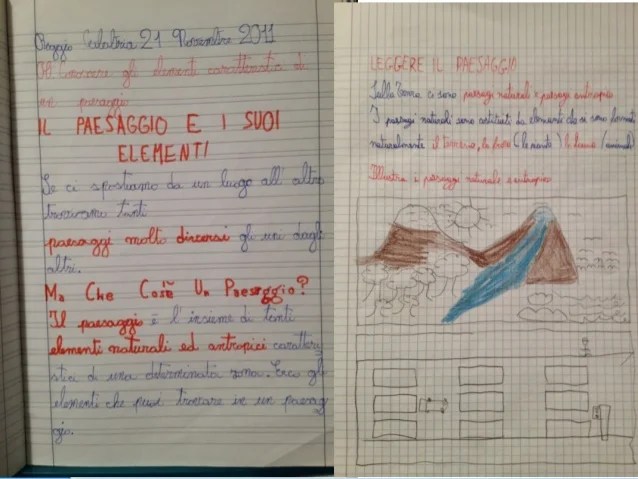 Reggio Calabria 21 Novembre 2011
Riconoscere gli elementi caratteristici di
un paesaggio
IL PAESAGGIO E I SUOI
ELEMENTI
Se ci spostiamo da un luogo all'altro
troviamo tanti
paesaggi molto diversi gli uni dagli
altri.
Ma Che Cos'è Un Paesaggio?
Il paesaggio è l'insieme di tanti
elementi naturali ed antropici caratteri
stici di una determinata zona. Ecco gli
elementi che puoi trovare in un paesag
gio.
LEGGERE IL PAESAGGIO
Sulla Terra ci sono paesaggi naturali e paesaggi antropici
I paesaggi naturali sono costituiti da elementi che si sono formati
naturalmente il terreno, la flora (le piante) la fauna (animali)
Illustra i paesaggi naturale e antropico